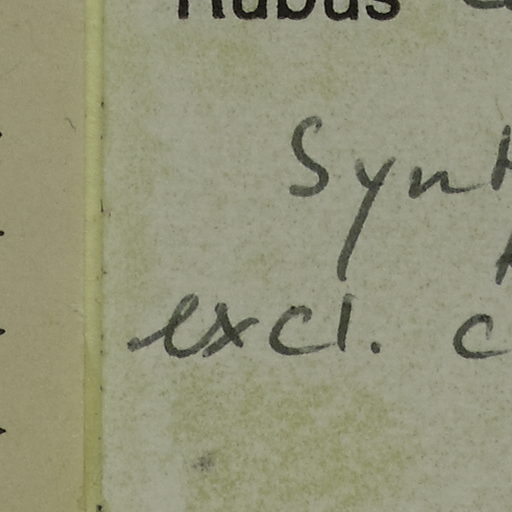 Rubus
Synt
excl. c